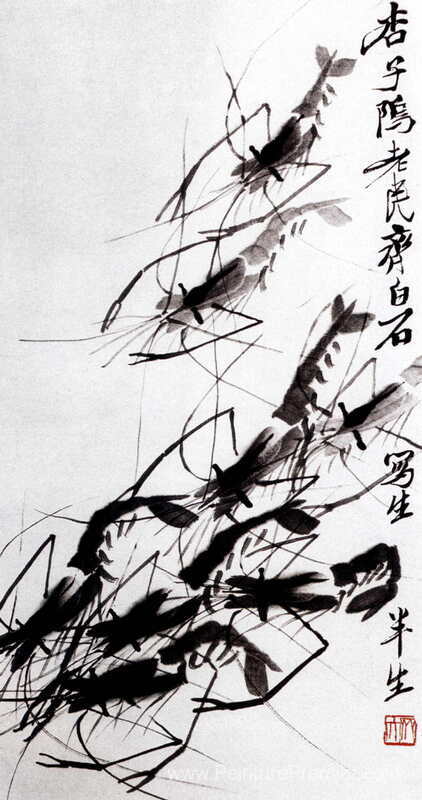 杏子隖老民齊白石
寫生
半生